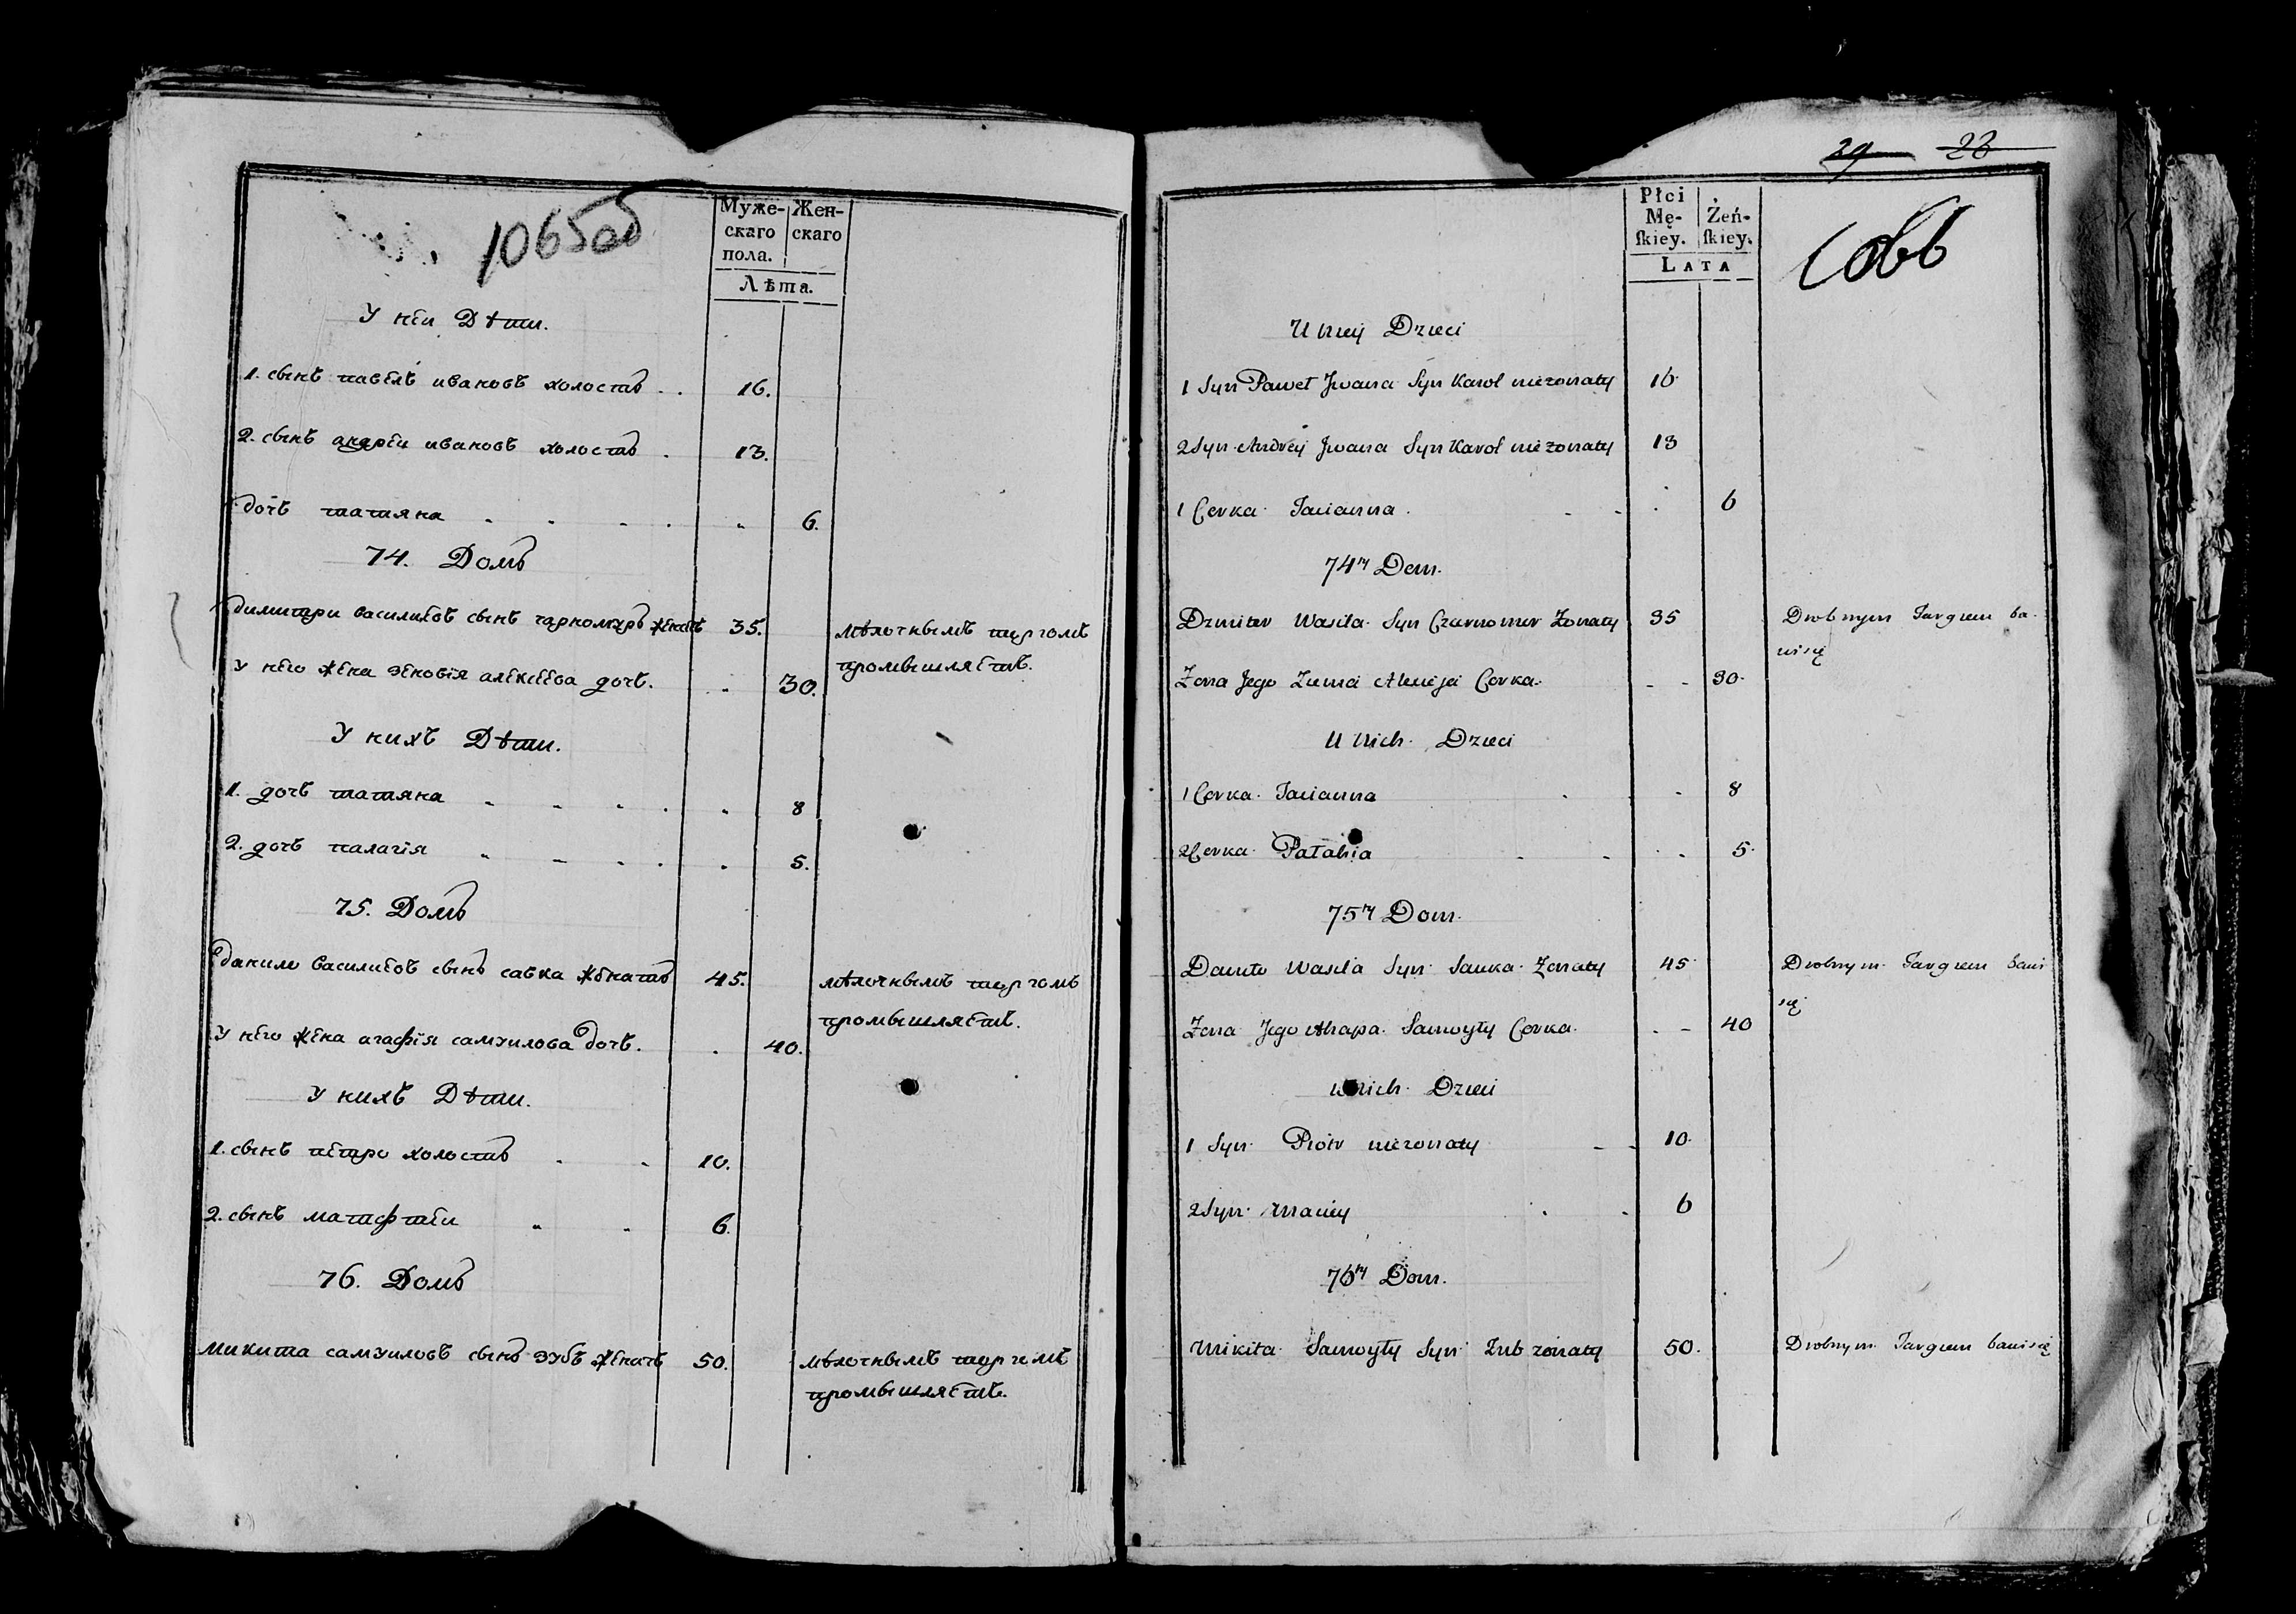 1065об
Муже-
скаго
пола.
Жен-
скаго
Лѣта.
У неи Дѣти.
1. сынъ павелъ ивановъ холостъ 16.
2. сынъ андреи ивановъ холостъ 13.
дочь татяна 6.
74. Домъ
димитри василиевъ сынъ чарноморъ женатъ 35. мѣлочнымъ торгомъ
промышляетъ.
У него жена зеновія алексеева дочь. 30.
У нихъ Дѣти.
1. дочь татяна 8
2. дочь палагія 5.
75. Домъ
данило василиевъ сынъ савка женатъ 45. мѣлочнымъ торгомъ
промышляетъ.
У него жена агафія самуилова дочь. 40.
У нихъ Дѣти.
1. сынъ петро холостъ 10.
2. сынъ матфтеи 6.
76. Домъ
Микита самуиловъ сынъ зубъ женатъ 50. мѣлочнымъ торгомъ
промышляетъ.
29 28
Płci
Mę-
ſkiey.
Żeń-
ſkiey.
LATA
U niey Dzieci
1 Syn Paweł Jwana Syn Karol nieżonaty 16
2 Syn Andrey Jwana Syn Karol nieżonaty 13
1 Corka Tacianna 6
74ty Dom.
Dzmiter Wasila Syn Czarnomor Zonaty 35 Drobnym Targiem ba-
wi się
Żona Jego Zienia Alexieja Corka 30
U Nich Dzieci
1 Corka Tacianna 8
2 Corka Pałahia 5
75ty Dom.
Daniło Wasila Syn Sauka Zonaty 45 Drobnym Targiem bawi
się
Żona Jego Ahapa Samoyły Corka 40
U Nich Dzieci
1 Syn Piotr nieżonaty 10
2 Syn Maciey 6
76ty Dom.
Mikita Samoyły Syn Zub żonaty 50 Drobnym Targiem bawi się